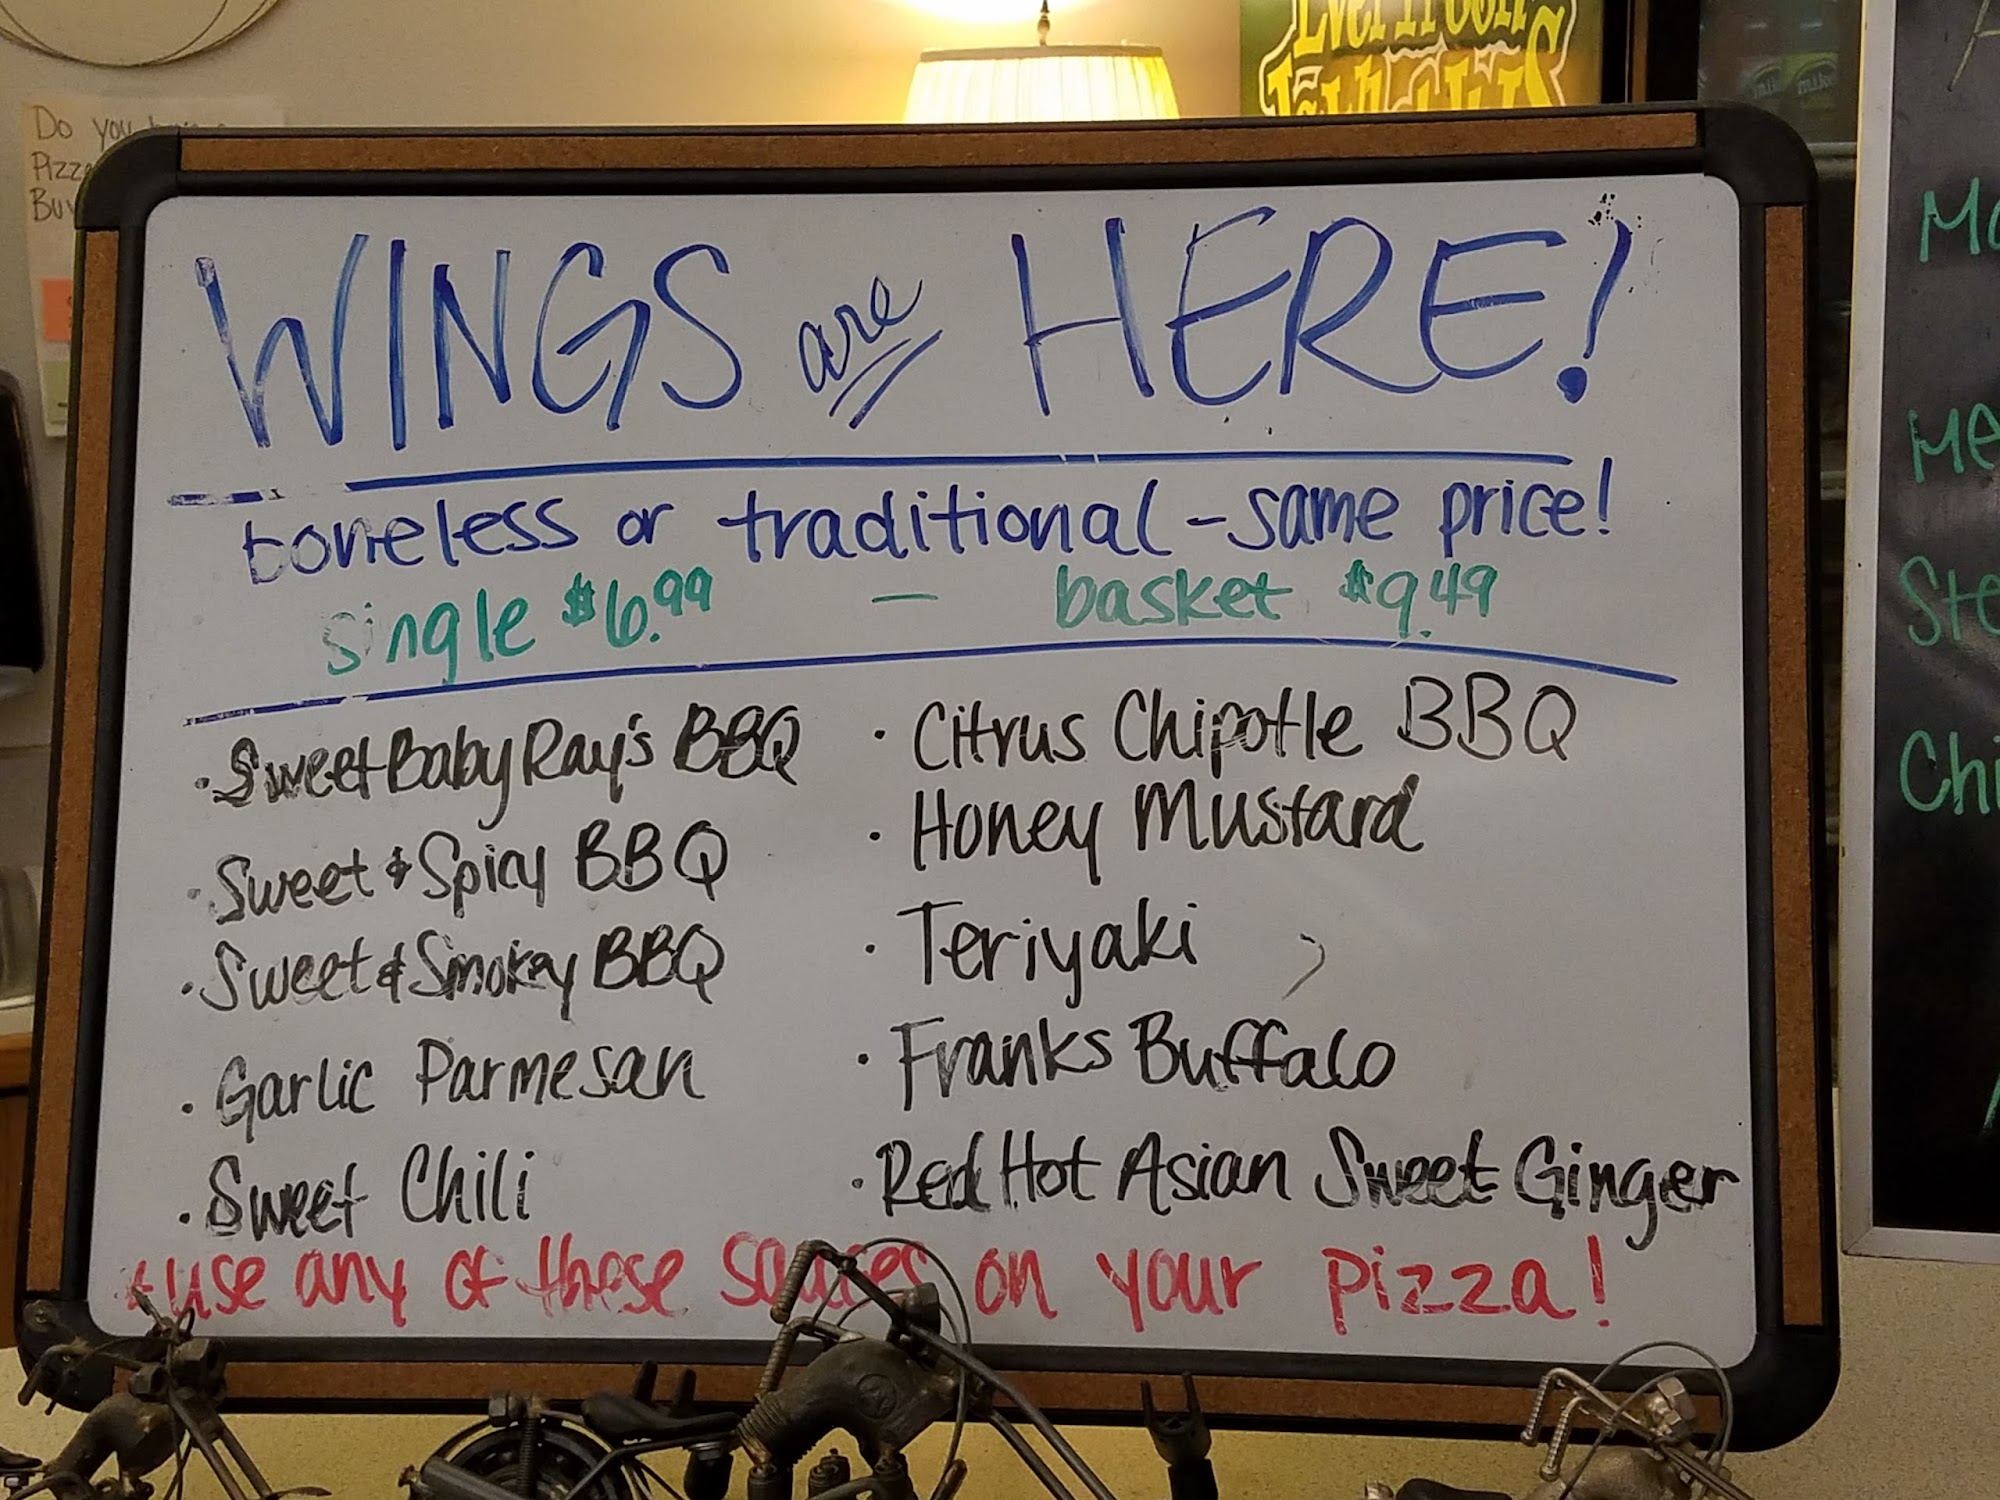 Do you
Pizza
Buy
WINGS are HERE!
boneless or traditional - same price!
single $6.99 - basket $9.49
· Sweet Baby Ray's BBQ
· Sweet & Spicy BBQ
· Sweet & Smokey BBQ
· Garlic Parmesan
· Sweet Chili
· Citrus Chipotle BBQ
· Honey Mustard
· Teriyaki
· Franks Buffalo
· Red Hot Asian Sweet Ginger
use any of these sauces on your pizza!
Me
Ste
Chi